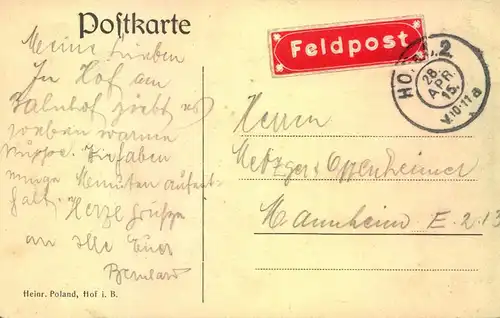 Postkarte
Feldpost
HOF 2
28
APR.
15.
V.10-11a
Meine Lieben
In Hof am
Bahnhof giebt es
soeben warme
Suppe. Wir haben
einige Minuten Aufent-
halt. Herzl. Grüsse
an alle Euer
Bernhard
Herrn
Metzger Oppenheimer
Mannheim E. 2.13
Heinr. Poland, Hof i. B.